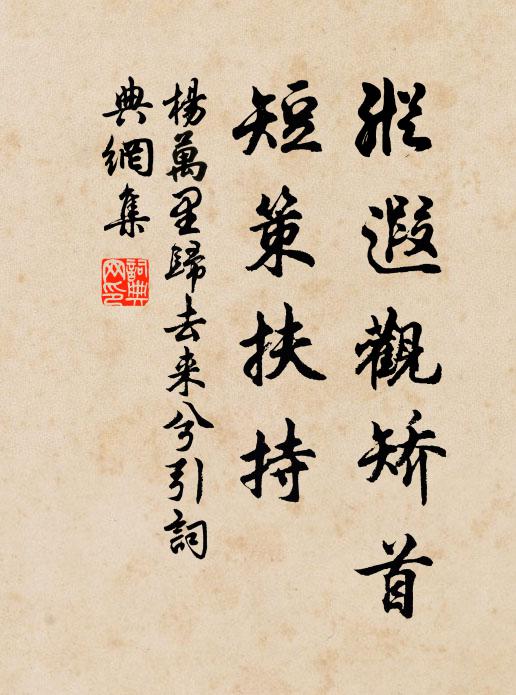 縱遐觀矫首
短策扶持
楊萬里歸去来兮引詞
典網集
詞典網印